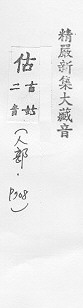 精嚴新集大藏音
估古姑二音
(人部·P908)